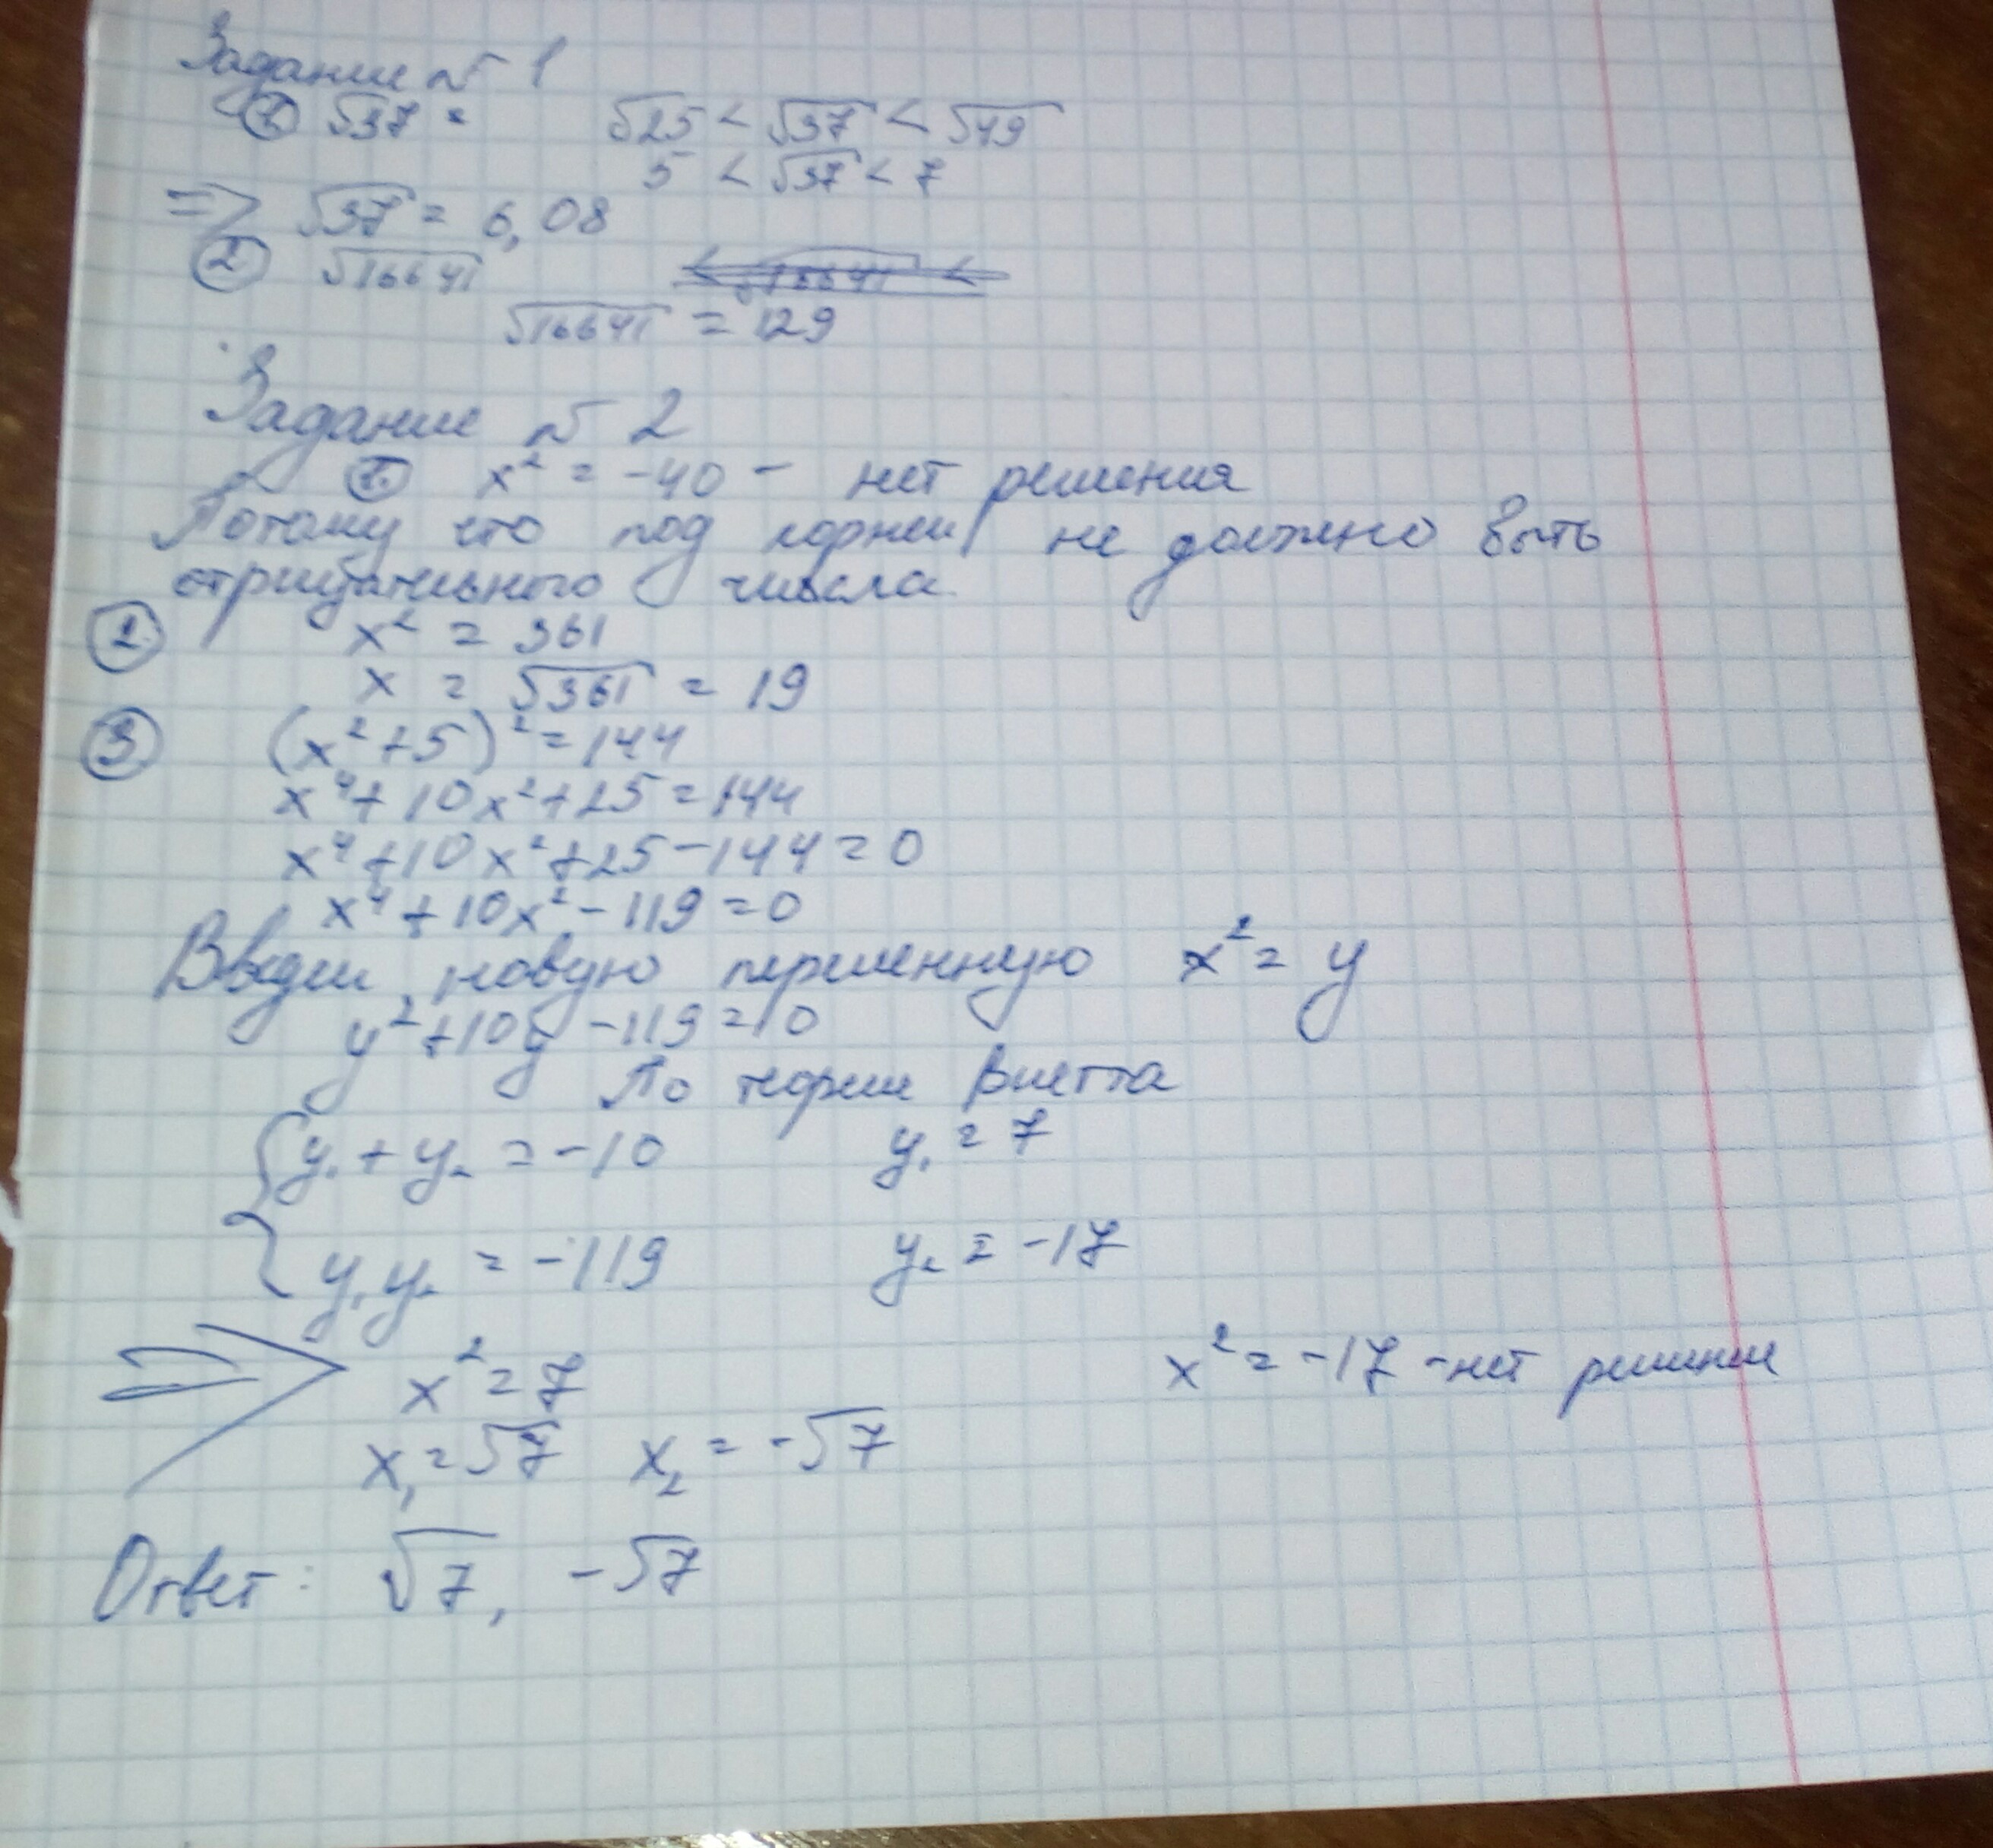 Задание № 1
① √37 =    √25 < √37 < √49
5 < √37 < 7
=> √37 = 6,08
② √16641
√16641 = 129
Задание № 2
① x² = -40 - нет решения
Потому что под корнем не должно быть
отрицательного числа.
② x² = 361
x = √361 = 19
③ (x²+5)² = 144
x⁴+10x²+25=144
x⁴+10x²+25-144=0
x⁴+10x²-119=0
Введем новую переменную x² = y
y²+10y-119=0
По теореме Виетта
{ y₁ + y₂ = -10    y₁ = 7
y₁y₂ = -119    y₂ = -17
=> x² = 7    x² = -17 - нет решение
x₁ = √7  x₂ = -√7
Ответ: √7, -√7